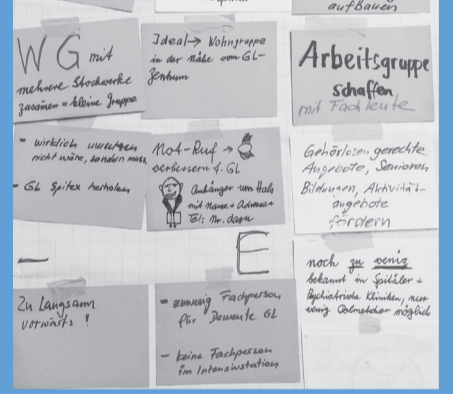 aufbauen
WG mit
mehrere Stockwerke
zusämen = kleine Gruppe
Ideal → Wohngruppe
in der Nähe vom GL-
Zentrum
Arbeitsgruppe
schaffen
mit Fachleute
- wirklich umsetzen
nicht wäre, sondern muss
- GL Spitex
Not-Ruf →
verbessern f. GL
Anhänger um Hals
mit Name + Adresse +
Tel: Nr. dazu
Gehörlosengerechte
Angebote, Senioren,
Bildungen, Aktivität-
angebote
fördern
E
Zu Langsam
vorwärts !
- zuwenig Fachperson
für Demente GL
- keine Fachperson
im Intensivstation
noch zu wenig
bekannt in Spitäler +
Psychiatrische Kliniken, nur
wenig Dolmetscher möglich